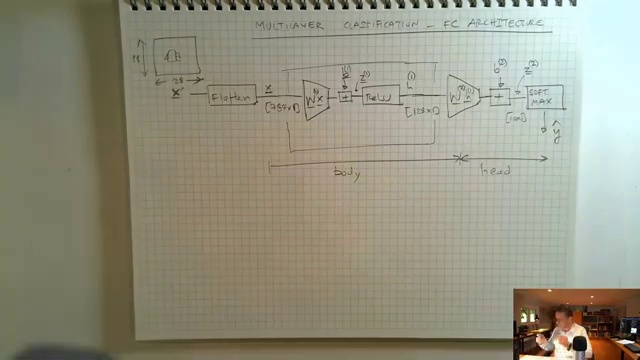 MULTILAYER CLASSIFICATION - FC ARCHITECTURE
28
28
x'
Flatten
x
[784x1]
W(1) x
b(1)
+
z(1)
ReLU
h(1)
[128x1]
W(2) h(1)
b(2)
+
z(2)
[10x1]
SOFT
MAX
ŷ
body
head